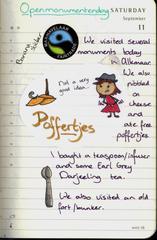 Openmonumentendag
SATURDAY
September
11
We visited several
monuments today
in Alkmaar
We also
nibbled
on
cheese
and
ate
free
poffertjes
Not a very
good idea...
Poffertjes
I bought a teaspoon/infuser
and some Earl Grey
Darjeeling tea.
We also visited an old
fort/bunker.